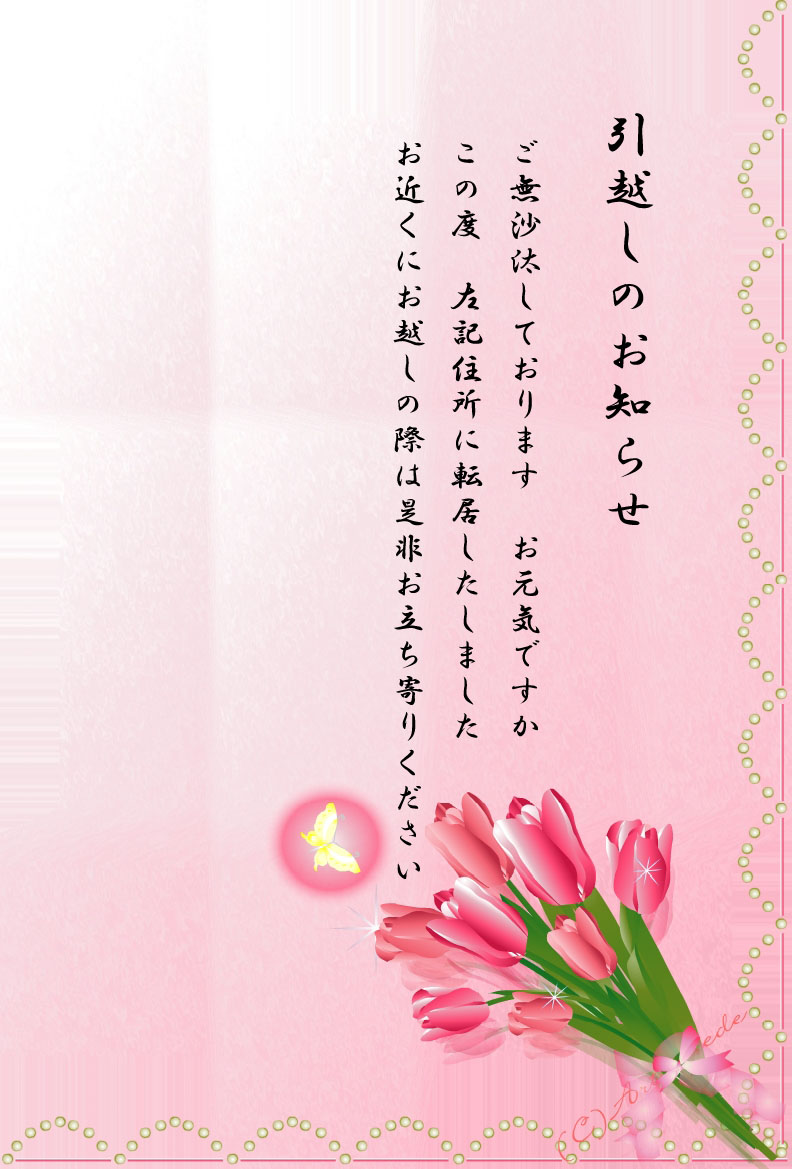 引越しのお知らせ
ご無沙汰しております　お元気ですか
この度　左記住所に転居したしました
お近くにお越しの際は是非お立ち寄りください
(C)